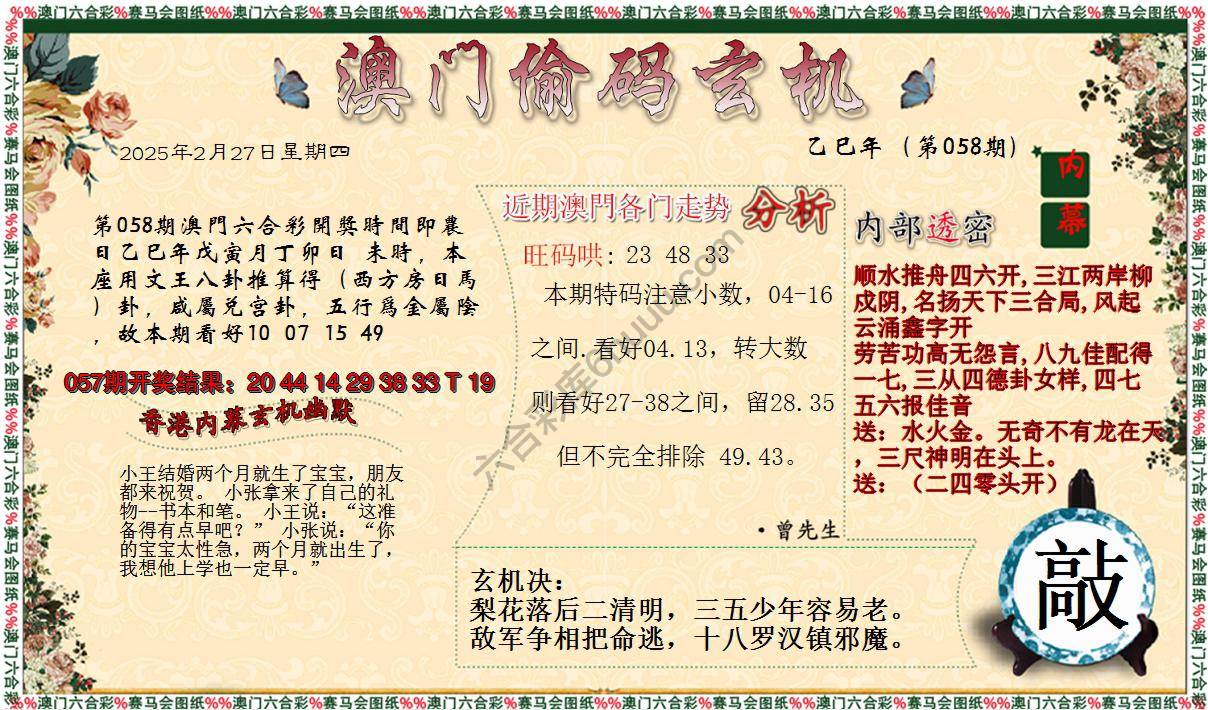 %%澳门六合彩%赛马会图纸%%澳门六合彩%赛马会图纸%%澳门六合彩%赛马会图纸%%澳门六合彩%赛马会图纸%%澳门六合彩%赛马会图纸%%澳门六合彩%赛马会图纸%%
澳门偷码玄机
2025年2月27日星期四
乙巳年（第058期）
内幕
第058期澳門六合彩開獎時間即農
日乙巳年戊寅月丁卯日 未時，本
座用文王八卦推算得（西方房日馬
）卦，咸屬兑宫卦，五行爲金屬陰
，故本期看好10 07 15 49
057期开奖结果：20 44 14 29 38 33 T 19
香港内幕玄机幽默
小王结婚两个月就生了宝宝，朋友
都来祝贺。 小张拿来了自己的礼
物--书本和笔。 小王说：“这准
备得有点早吧？” 小张说：“你
的宝宝太性急，两个月就出生了，
我想他上学也一定早。”
近期澳門各门走势 分析
旺码哄: 23 48 33
本期特码注意小数，04-16
之间.看好04.13，转大数
则看好27-38之间，留28.35
但不完全排除 49.43。
·曾先生
内部透密
顺水推舟四六开,三江两岸柳
成阴,名扬天下三合局,风起
云涌鑫字开
劳苦功高无怨言,八九佳配得
一七,三从四德卦女样,四七
五六报佳音
送：水火金。无奇不有龙在天
，三尺神明在头上。
送：（二四零头开）
玄机决：
梨花落后二清明，三五少年容易老。
敌军争相把命逃，十八罗汉镇邪魔。
敲